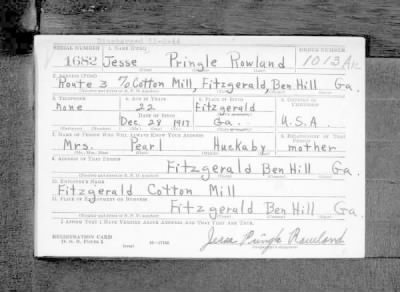 SERIAL NUMBER 1. NAME (Print) ORDER NUMBER
1682 Jesse Pringle Rowland 1013A
(First) (Middle) (Last)
2. ADDRESS (Print)
Route 3 % Cotton Mill, Fitzgerald, Ben Hill Ga.
3. TELEPHONE 4. AGE IN YEARS 5. PLACE OF BIRTH 6. COUNTRY OF CITIZENSHIP
none 22 Fitzgerald
DATE OF BIRTH
Dec. 28 1917 Ga. U.S.A.
7. NAME OF PERSON WHO WILL ALWAYS KNOW YOUR ADDRESS 8. RELATIONSHIP OF THAT PERSON
Mrs. Pearl Huckaby mother
9. ADDRESS OF THAT PERSON
Fitzgerald Ben Hill Ga.
10. EMPLOYER'S NAME
Fitzgerald Cotton Mill
11. PLACE OF EMPLOYMENT OR BUSINESS
Fitzgerald Ben Hill Ga.
I AFFIRM THAT I HAVE VERIFIED ABOVE ANSWERS AND THAT THEY ARE TRUE.
REGISTRATION CARD
D. S. S. FORM 1 (over) Jesse Pringle Rowland